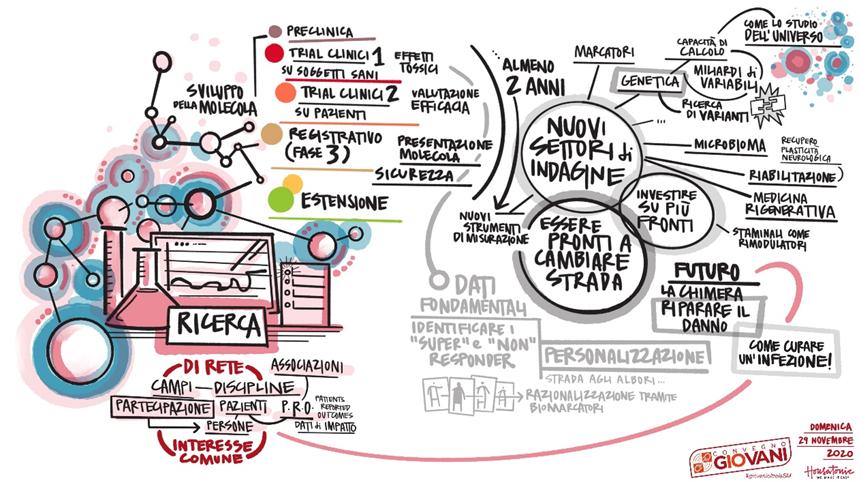 PRECLINICA
TRIAL CLINICI 1
SU SOGGETTI SANI
EFFETTI
TOSSICI
SVILUPPO
DELLA MOLECOLA
TRIAL CLINICI 2
SU PAZIENTI
VALUTAZIONE
EFFICACIA
REGISTRATIVO
(FASE 3)
PRESENTAZIONE
MOLECOLA
SICUREZZA
ESTENSIONE
RICERCA
DI RETE
ASSOCIAZIONI
CAMPI — DISCIPLINE
PARTECIPAZIONE
PAZIENTI
P.R.O.
PATIENTS
REPORTED
OUTCOMES
PERSONE
DATI di IMPATTO
INTERESSE
COMUNE
ALMENO
2 ANNI
MARCATORI
GENETICA
CAPACITÀ DI
CALCOLO
COME LO STUDIO
DELL'UNIVERSO
MILIARDI di
VARIABILI
RICERCA
DI VARIANTI
...
NUOVI
SETTORI di
INDAGINE
MICROBIOMA
RECUPERO
PLASTICITÀ
NEUROLOGICA
RIABILITAZIONE
MEDICINA
RIGENERATIVA
STAMINALI COME
RIMODULATORI
INVESTIRE
SU PIÙ
FRONTI
NUOVI
STRUMENTI
DI MISURAZIONE
ESSERE
PRONTI A
CAMBIARE
STRADA
FUTURO
LA CHIMERA
RIPARARE IL
DANNO
COME CURARE
UN'INFEZIONE!
DATI
FONDAMENTALI
IDENTIFICARE I
"SUPER" e "NON"
RESPONDER
PERSONALIZZAZIONE
STRADA AGLI ALBORI...
RAZIONALIZZAZIONE TRAMITE
BIOMARCATORI
CONVEGNO
GIOVANI
DOMENICA
29 NOVEMBRE
2020
Housatonic